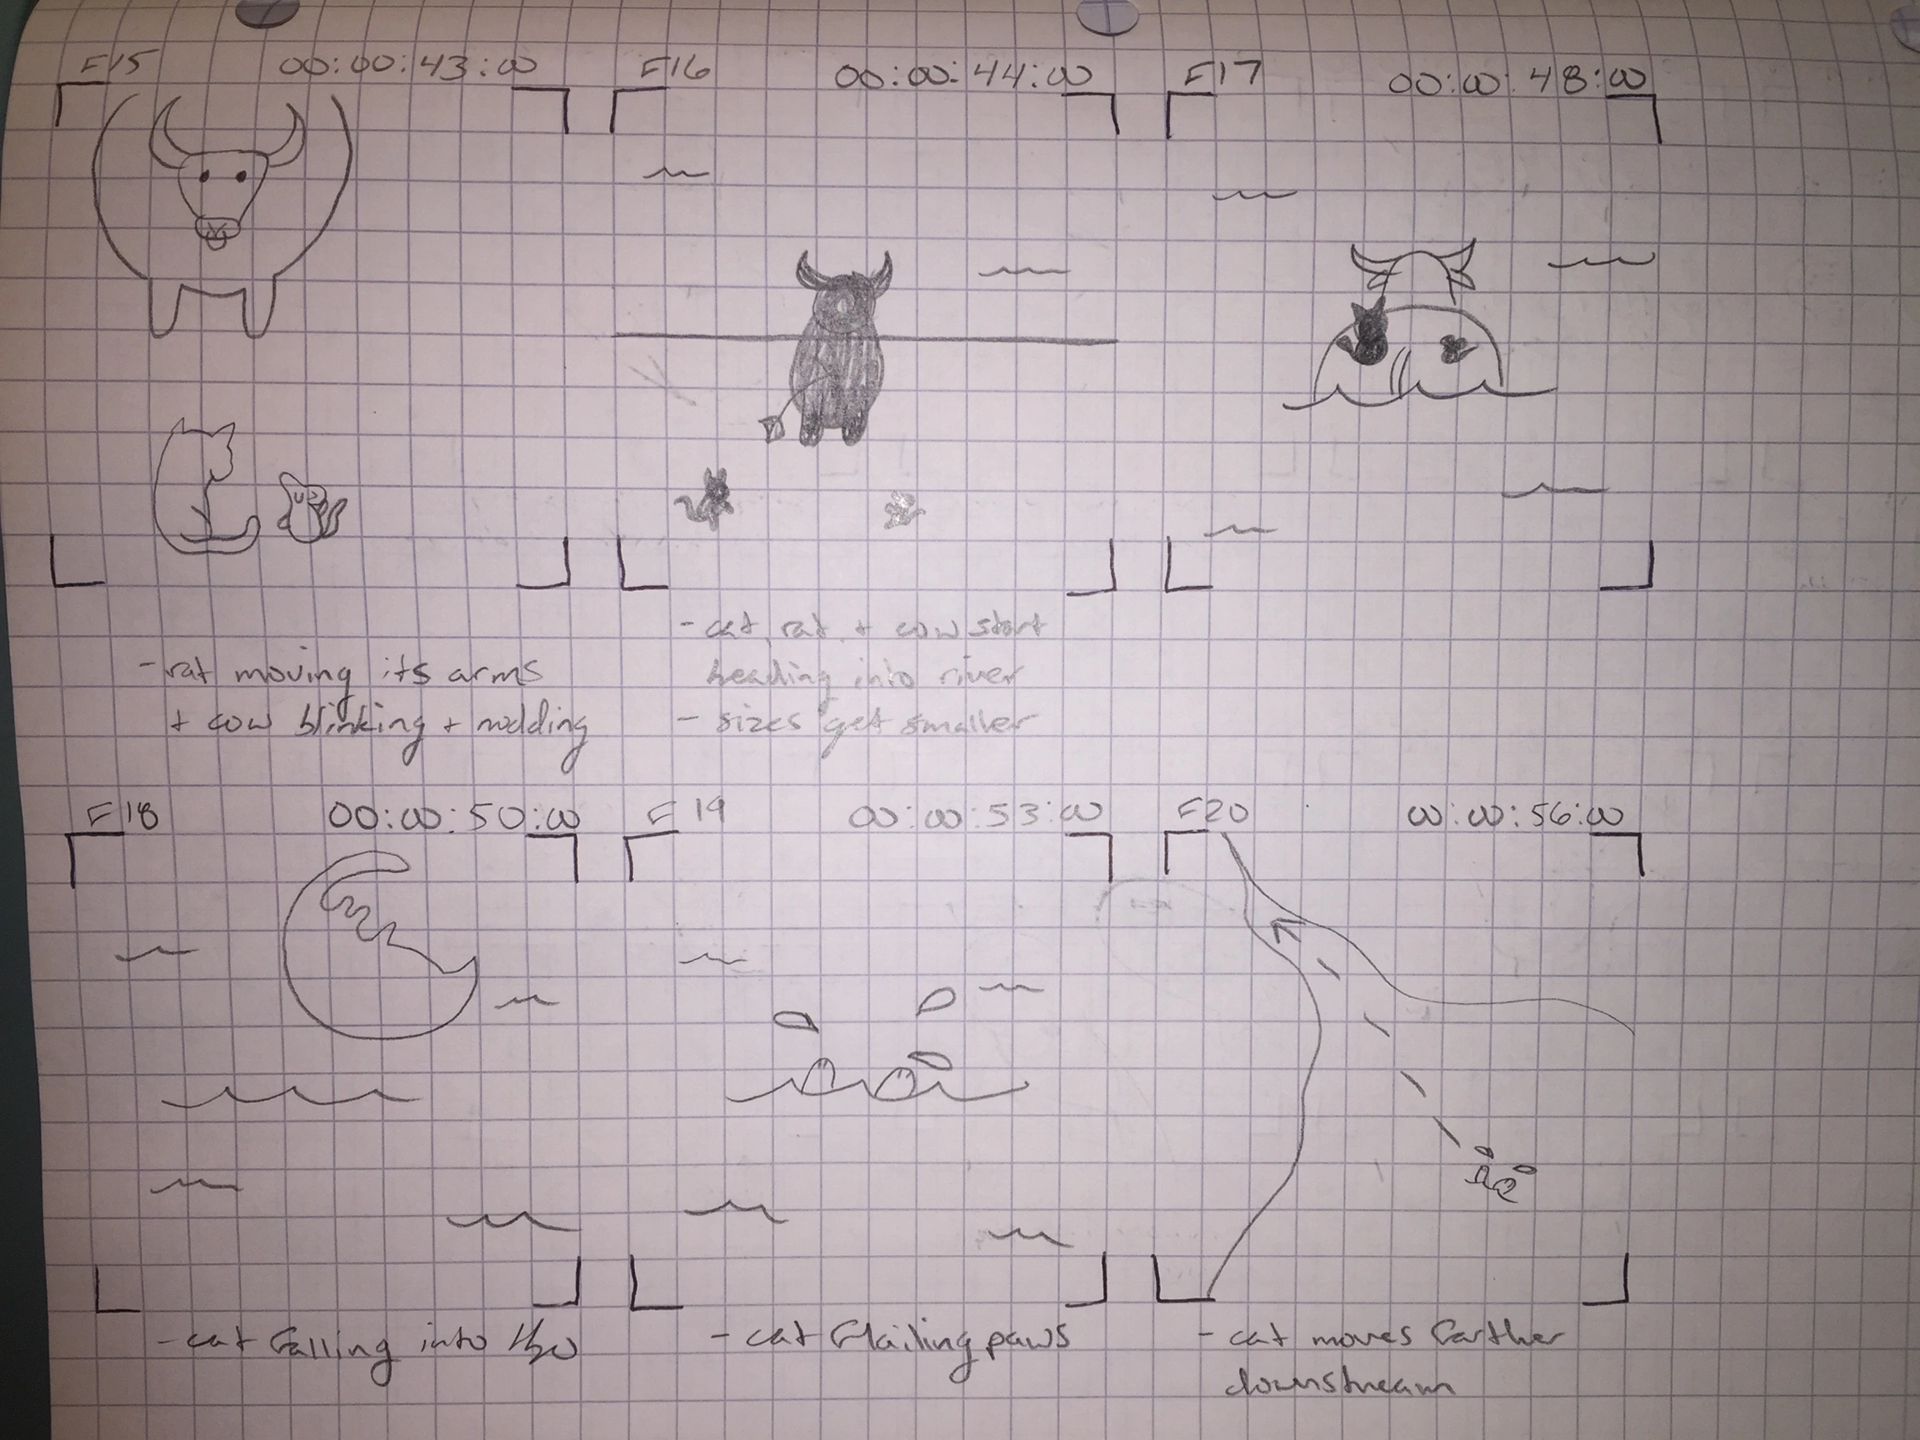 F15 00:00:43:00 F16 00:00:44:00 F17 00:00:48:00
- rat moving its arms
+ cow blinking + nodding
- cat, rat, + cow start
heading into river
- sizes get smaller
F18 00:00:50:00 F19 00:00:53:00 F20 00:00:56:00
- cat falling into H2O
- cat flailing paws
- cat moves farther
downstream